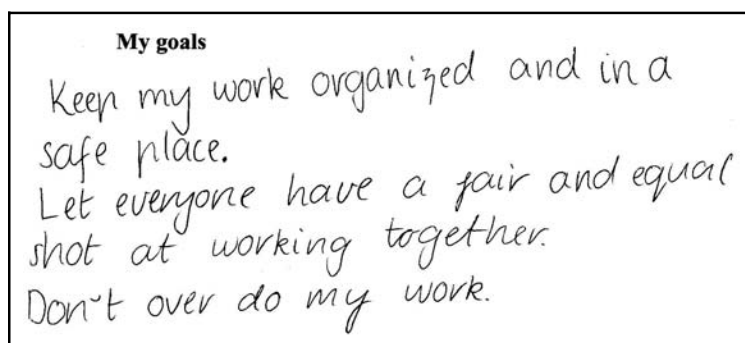 My goals
Keep my work organized and in a
safe place.
Let everyone have a fair and equal
shot at working together.
Don't over do my work.